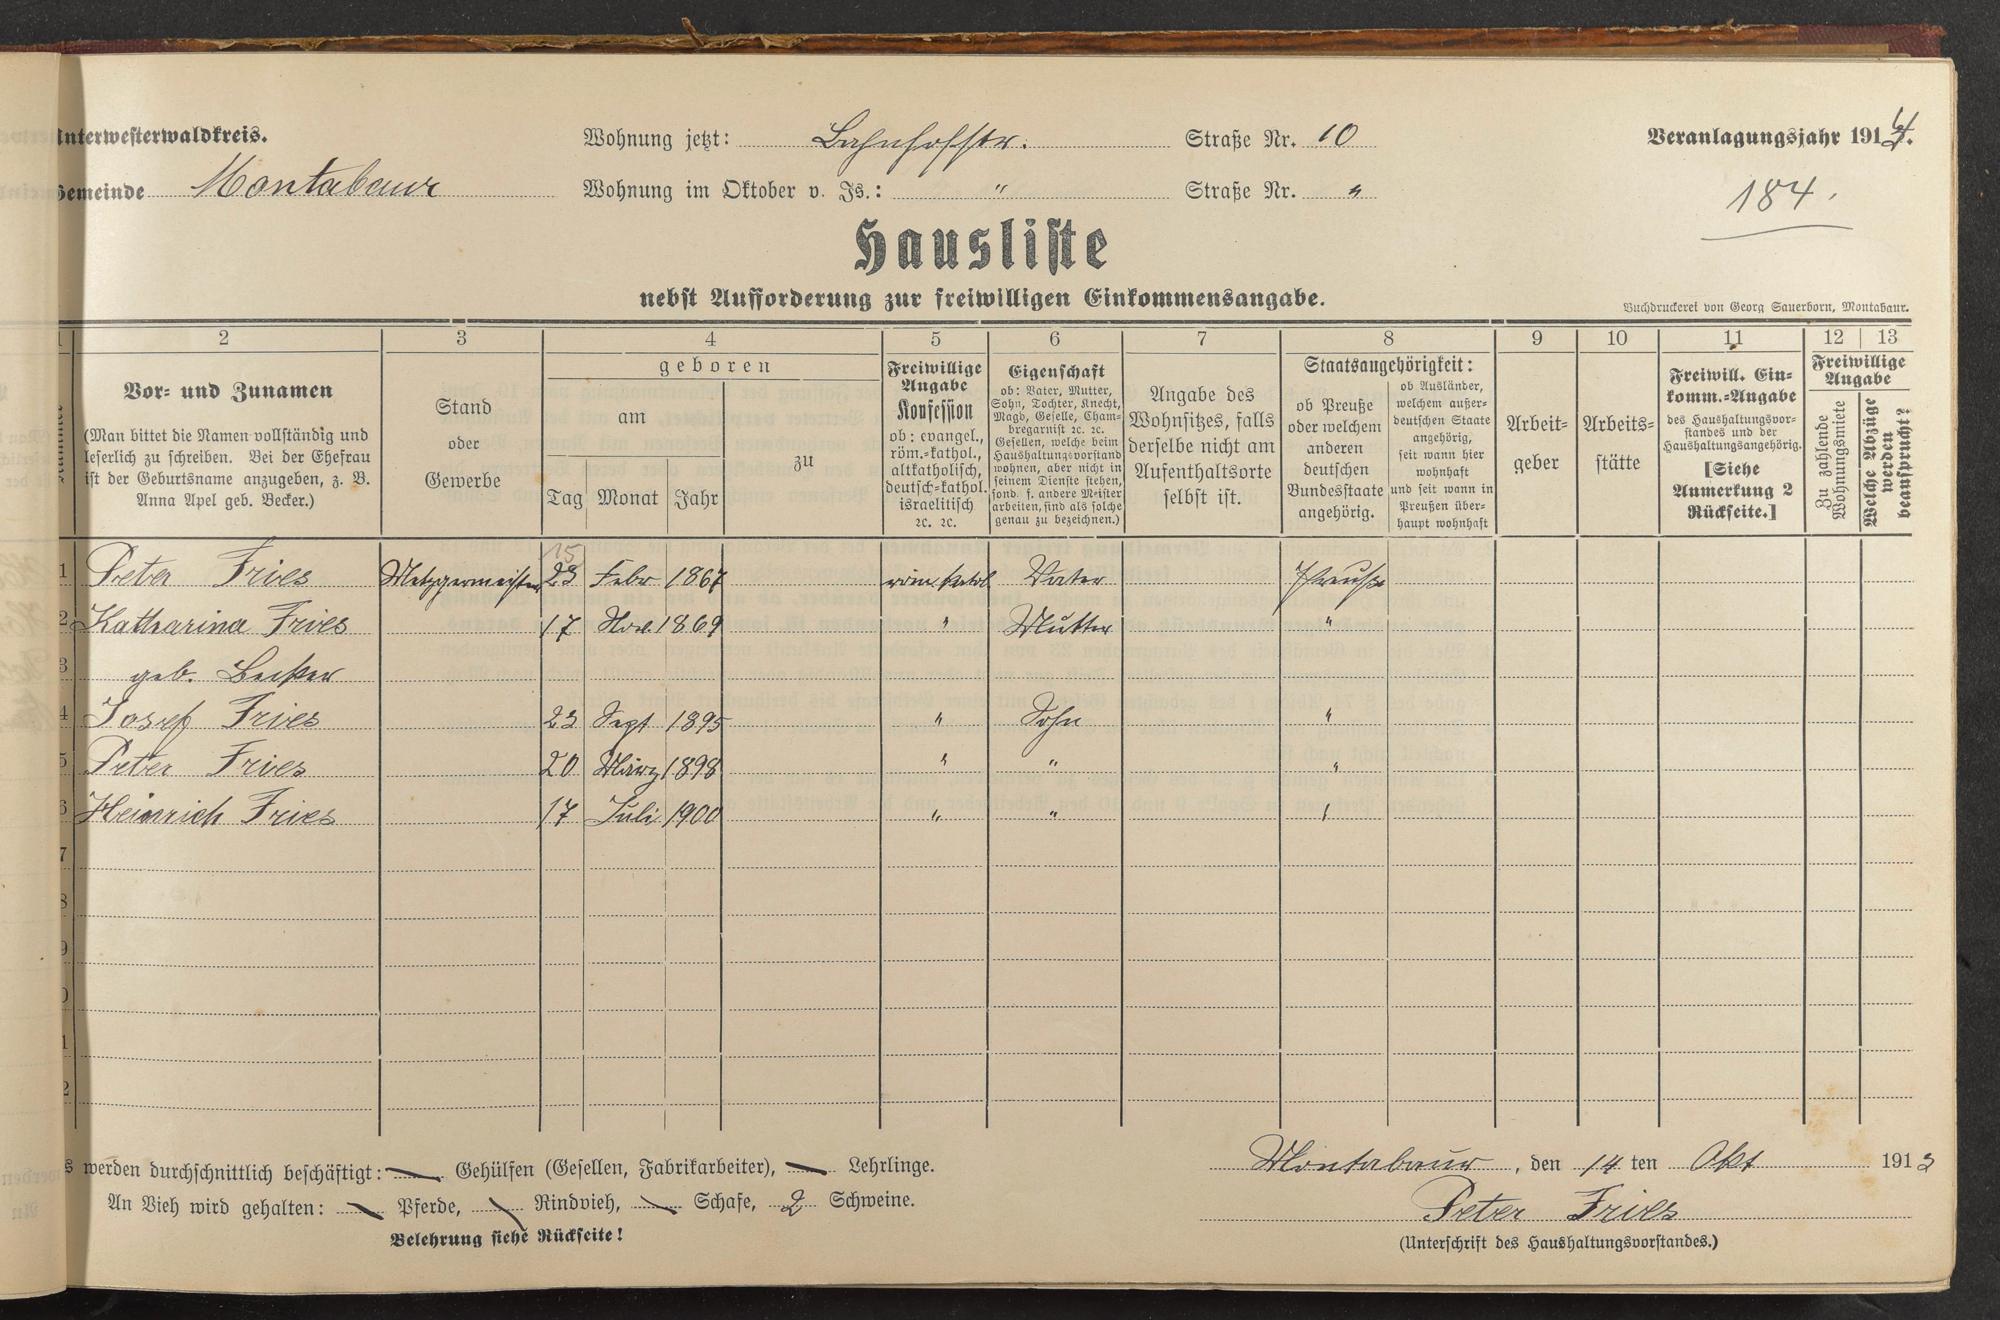 Unterwesterwaldkreis. Wohnung jetzt: Bahnhofstr. Straße Nr. 10 Veranlagungsjahr 1914.
Gemeinde Montabaur Wohnung im Oktober v. Js.: " Straße Nr. "
184.
Hausliste
nebst Aufforderung zur freiwilligen Einkommensangabe.
Buchdruckerei von Georg Sauerborn, Montabaur.
1 2 3 4 5 6 7 8 9 10 11 12 13
Nummer
Vor- und Zunamen
(Man bittet die Namen vollständig und
leserlich zu schreiben. Bei der Ehefrau
ist der Geburtsname anzugeben, z. B.
Anna Apel geb. Becker.)
Stand
oder
Gewerbe
geboren
am
Tag Monat Jahr
zu
Freiwillige
Angabe
Konfession
ob: evangel.,
röm.-kathol.,
altkatholisch,
deutsch-kathol.
israelitisch
ec. ec.
Eigenschaft
ob: Vater, Mutter,
Sohn, Tochter, Knecht,
Magd, Geselle, Cham-
bregarnist ec. ec.
Gesellen, welche beim
Haushaltungsvorstand
wohnen, aber nicht in
seinem Dienste stehen,
sond. f. andere Meister
arbeiten, sind als solche
genau zu bezeichnen.)
Angabe des
Wohnsitzes, falls
derselbe nicht am
Aufenthaltsorte
selbst ist.
Staatsangehörigkeit:
ob Preuße
oder welchem
anderen
deutschen
Bundesstaate
angehörig.
ob Ausländer,
welchem außer-
deutschen Staate
angehörig,
seit wann hier
wohnhaft
und seit wann in
Preußen über-
haupt wohnhaft
Arbeit-
geber
Arbeits-
stätte
Freiwill. Ein-
komm.-Angabe
des Haushaltungsvor-
standes und der
Haushaltungsangehörig.
[Siehe
Anmerkung 2
Rückseite.]
Freiwillige
Angabe
Zu zahlende
Wohnungsmiete
Welche Abzüge
werden
beansprucht?
15
1 Peter Fries Metzgermeister 23 Febr 1867 röm. kathol Vater Preuße
2 Katharina Fries 17 Nov. 1869 " Mutter "
3 geb. Becker
4 Josef Fries 23 Sept 1895 " Sohn "
5 Peter Fries 20 März 1898 " " "
6 Heinrich Fries 17 Juli 1900 " " "
7
8
9
0
1
2
s werden durchschnittlich beschäftigt: — Gehülfen (Gesellen, Fabrikarbeiter), — Lehrlinge.
An Vieh wird gehalten: — Pferde, — Rindvieh, — Schafe, 2 Schweine.
Belehrung siehe Rückseite!
Montabaur, den 14 ten Okt 1913
Peter Fries
(Unterschrift des Haushaltungsvorstandes.)